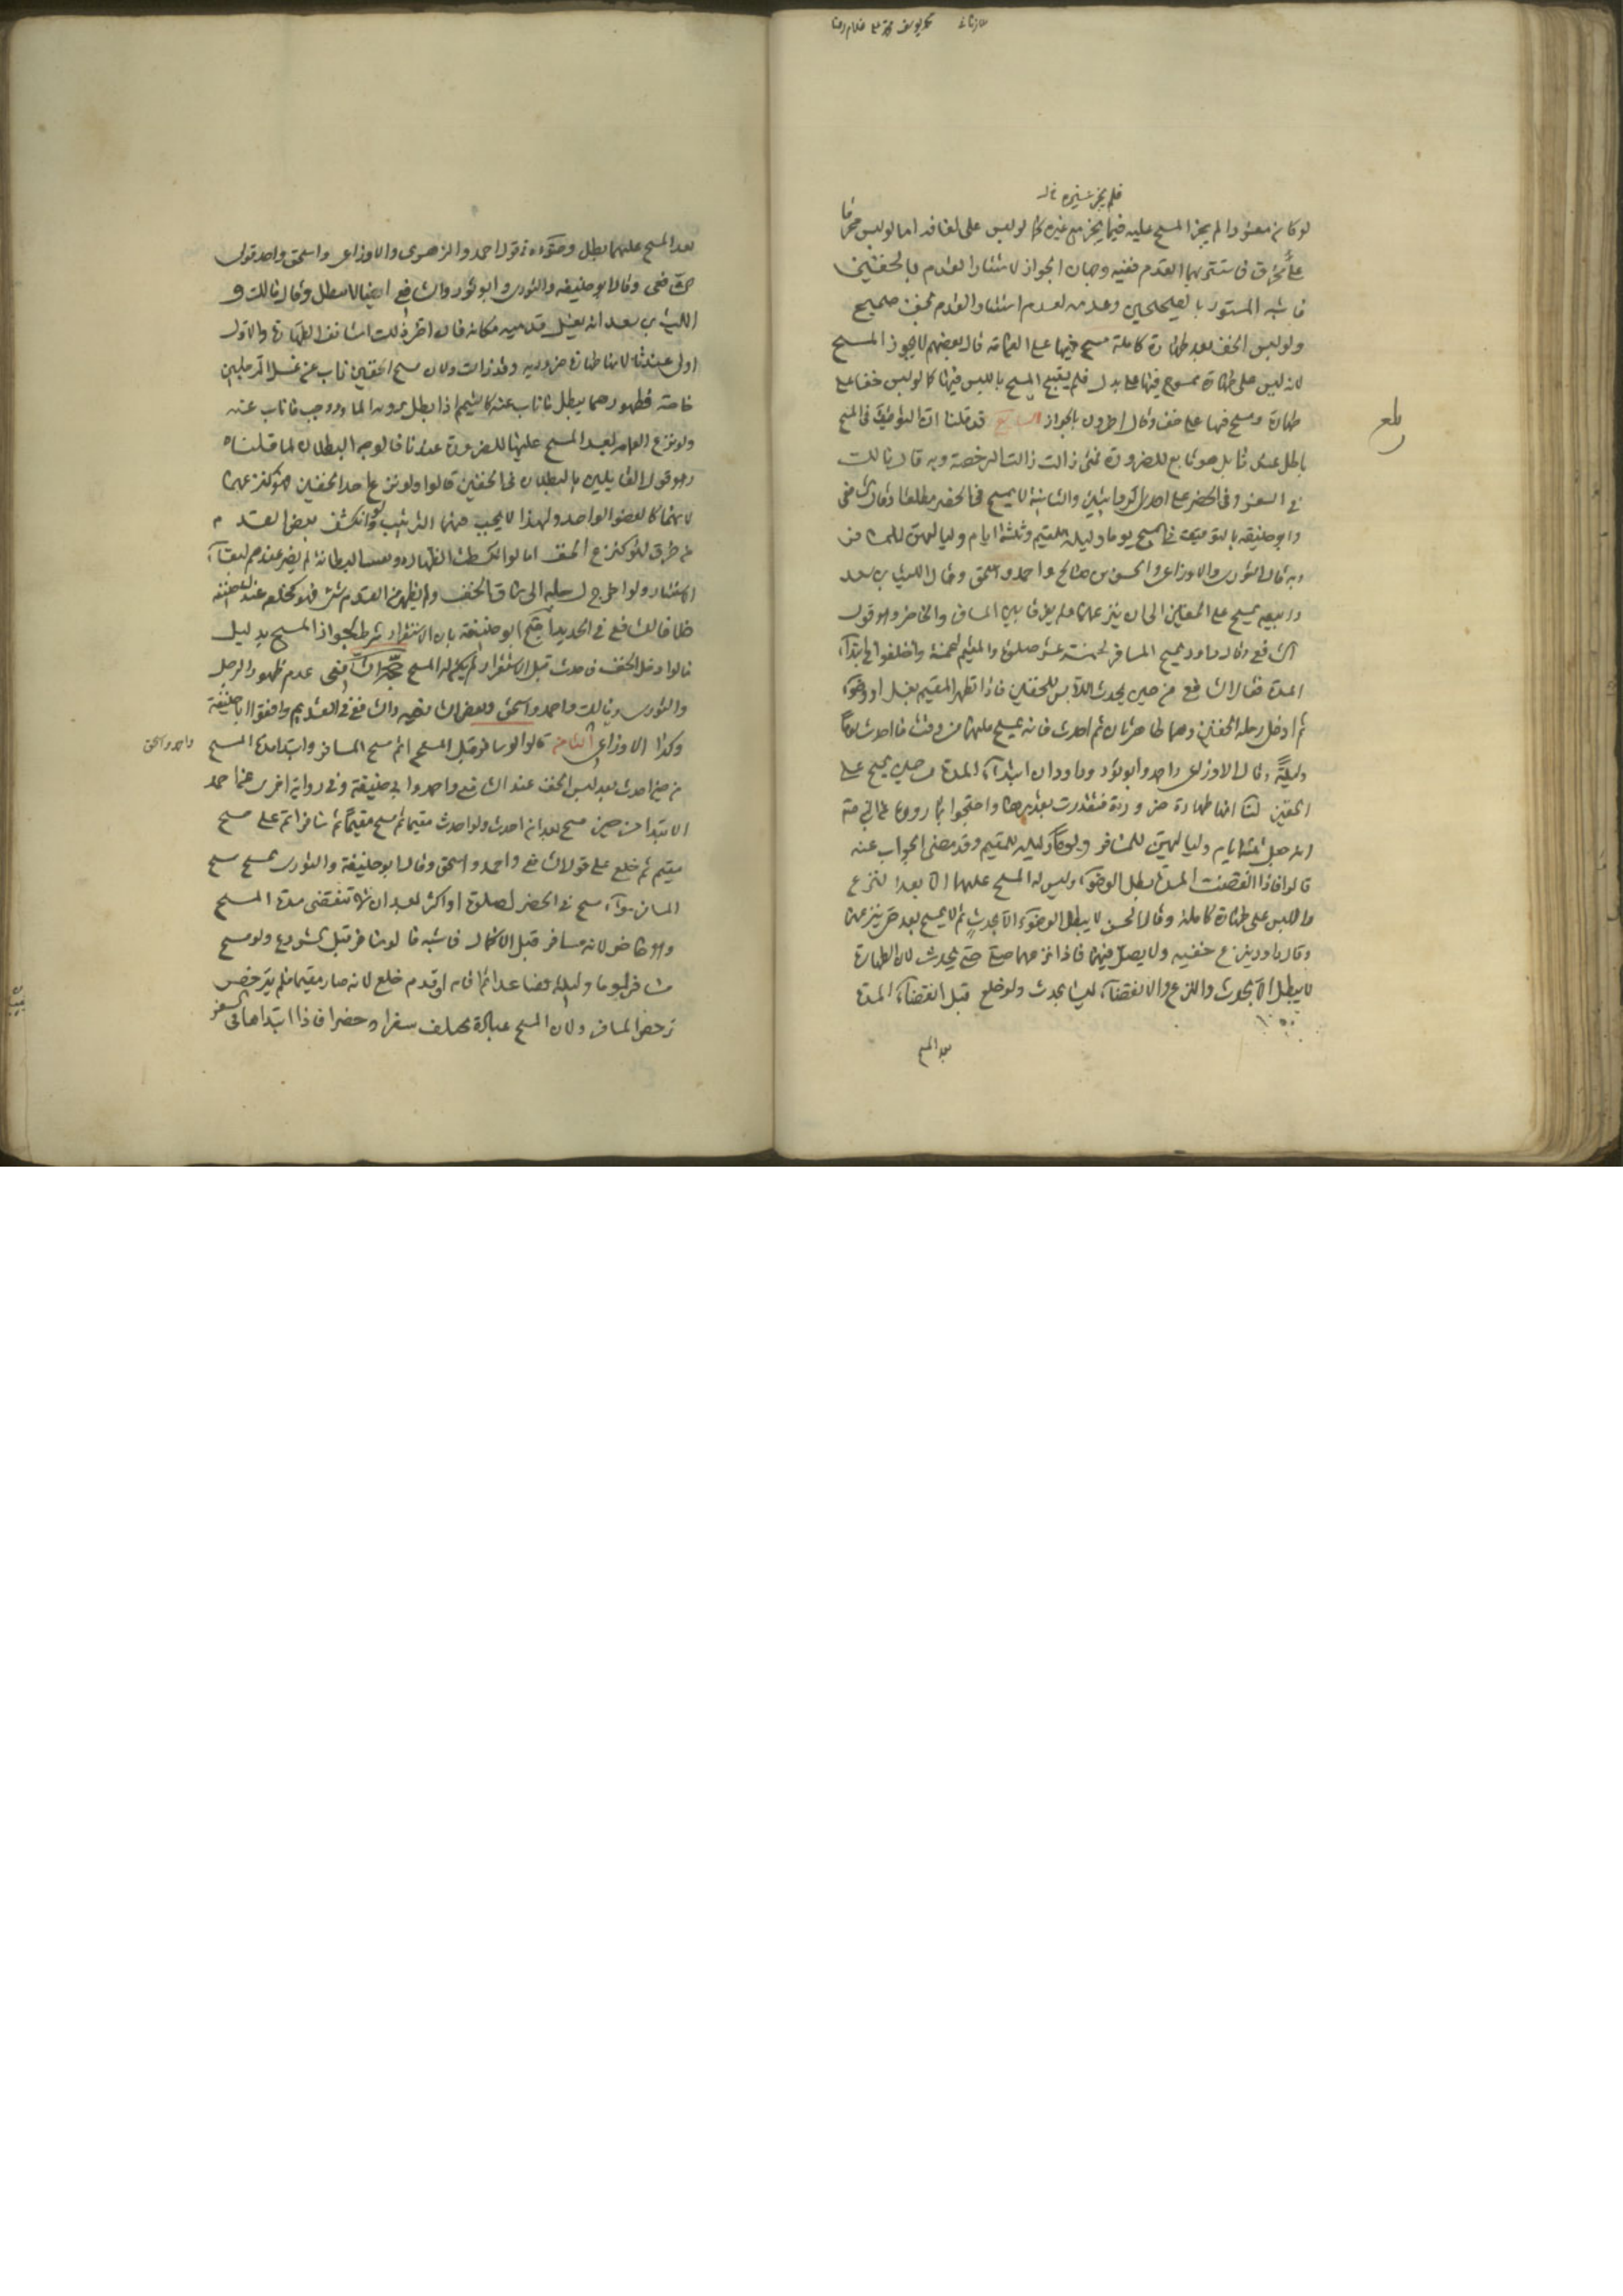 فلم يجز غيره
لو كان معتورا لم يجز المسح عليه فيما يجز مع غيره كما لو لبس على لفافة اما لو لبس مخرقا
على مخرق فاستتر بهما القدم ففيه وجهان الجواز لاستتار القدم بالخفين
فاشبه المستور بالصحيحين وعدمه لعدم استتار القدم بخف صحيح
ولو لبس الخف بعد طهارة كاملة مسح فيها على العمامة قال بعضهم لا يجوز المسح
لانه لبس على طهارة ممسوح فيها على بدل فلم يستبح المسح باللبس فيها كما لو لبس خفا على
طهارة ومسح فيها على خف وقال اخرون بالجواز السابع قد قلنا ان التوقيت في المسح
باطل عندنا بل هو تابع للضرورة فمتى زالت زالت الرخصة وبه قال مالك
في السفر وفي الحضر على احدى الروايتين والثانية لا يمسح في الحضر مطلقا وقال الشافعي
وابو حنيفة بالتوقيت في المسح يوما وليلة للمقيم وثلثة ايام ولياليهن للمسافر
وبه قال الثوري والاوزاعي والحسن بن صالح واحمد واسحق وقال الليث بن سعد
وربيعة يمسح على الخفين الى ان ينزعهما ولم يفرقا بين المسافر والحاضر وهو قول
الشافعي وقال داود يمسح المسافر لخمسة عشر صلوة والمقيم لخمسة واختلفوا في ابتداء
المدة فقال الشافعي من حين يحدث اللابس للخفين فاذا تطهر المقيم بغسل او وضوء
ثم ادخل رجليه الخفين وهما طاهرتان ثم احدث فانه يمسح عليهما من وقت ما احدث يوما
وليلة وقال الاوزاعي واحمد وابو ثور وداود ان ابتداء المدة من حين يمسح على
الخفين لنا انها طهارة ضرورية فتقدرت بقدرها واحتجوا بما رووه عن النبي
انه جعل ثلثة ايام ولياليهن للمسافر ويوما وليلة للمقيم وقد مضى الجواب عنه
قالوا فاذا انقضت المدة بطل الوضوء وليس له المسح عليهما الا بعد النزع
واللبس على طهارة كاملة وقال الحسن لا يبطل الوضوء الا بحدث ثم لا يمسح بعد حتى ينزعهما
وقال داود ينزع خفيه ولا يصلي فيهما فاذا نزعهما صلى حتى يحدث لان الطهارة
لا يبطل الا بحدث والنزع والانقضاء ليسا بحدث ولو خلع قبل انقضاء المدة
بعد المسح
بعد المسح عليهما بطل وضوءه في قول احمد والزهري والاوزاعي واسحق واحد قولي
الشافعي وقال ابو حنيفة والثوري وابو ثور والشافعي ايضا لا يبطل وقال مالك و
الليث بن سعد انه يغسل قدميه مكانه فان اخر ذلك استانف الطهارة والاول
اولى عندنا لانها طهارة ضرورية وقد زالت ولان مسح الخفين ناب عن غسل الرجلين
خاصة فظهورهما يبطل ما ناب عنه كالتيمم اذا بطل برؤية الماء ووجب ما ناب عنه
ولو نزع العمامة بعد المسح عليها للضرورة عندنا فالوجه البطلان لما قلناه
وهو قول القايلين بالبطلان في الخفين قالوا ولو نزع احد الخفين فهو كنزعهما
لانهما كالعضو الواحد ولهذا لا يجب فيهما الترتيب ولو انكشف بعض القدم
من خرق فهو كنزع الخف اما لو انكشطت الظهارة وبقيت البطانة لم يضر عندهم لبقاء
الاستتار ولو اخرج رجليه الى ساق الخف ولم يظهر من القدم شيء فهو كخلعه عند ابي حنيفة
خلافا للشافعي في الجديد احتج ابو حنيفة بان الاستقرار شرط لجواز المسح بدليل
ما لو ادخل الخف فاحدث قبل الاستقرار لم يكن له المسح حجة الشافعي عدم ظهور الرجل
والثوري ومالك واحمد واسحق وبعض الشافعية والشافعي في القديم وافقوا ابا حنيفة
وكذا الاوزاعي الثامن قالوا لو سافر قبل المسح اتم مسح المسافر وابتداء مدة المسح
واحمد واسحق
من حين احدث بعد لبس الخف عند الشافعي واحمد وابي حنيفة وفي رواية اخرى عن احمد
الابتداء من حين مسح بعد ان احدث ولو احدث مقيما ثم مسح مقيما ثم سافر اتم على مسح
مقيم ثم خلع على قول الشافعي واحمد واسحق وقال ابو حنيفة والثوري يمسح مسح
المسافر سواء مسح في الحضر لصلوة او اكثر بعد ان لا تنقضي مدة المسح
وهو حاضر لانه مسافر قبل الاكمال فاشبه ما لو سافر قبل الشروع ولو مسح
مسافر يوما وليلة فصاعدا ثم اقام او قدم خلع لانه صار مقيما فلم يترخص
ترخص المسافر ولان المسح عبادة يختلف سفرا وحضرا فاذا ابتداها في السفر